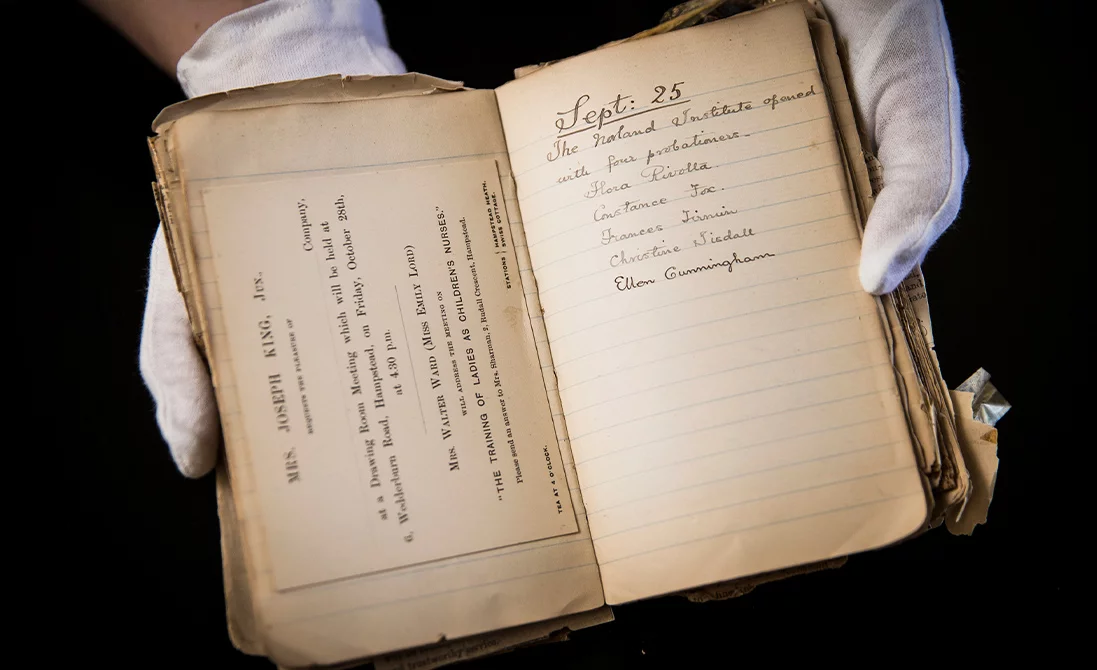 MRS. JOSEPH KING, Jun.,
REQUESTS THE PLEASURE OF
Company,
at a Drawing Room Meeting which will be held at
6, Wedderburn Road, Hampstead, on Friday, October 28th,
at 4.30 p.m.
MRS. WALTER WARD (MISS EMILY LORD)
WILL ADDRESS THE MEETING ON
"THE TRAINING OF LADIES AS CHILDREN'S NURSES."
Please send an answer to Mrs. Sharman, 2, Rudall Crescent, Hampstead.
TEA AT 4 O'CLOCK.
STATIONS HAMPSTEAD HEATH.
SWISS COTTAGE.
Sept: 25
The Norland Institute opened
with four probationers
Flora Rivolta
Constance Fox.
Frances Firmin
Christine Tisdall
Ellen Cunningham
trustworthy service.